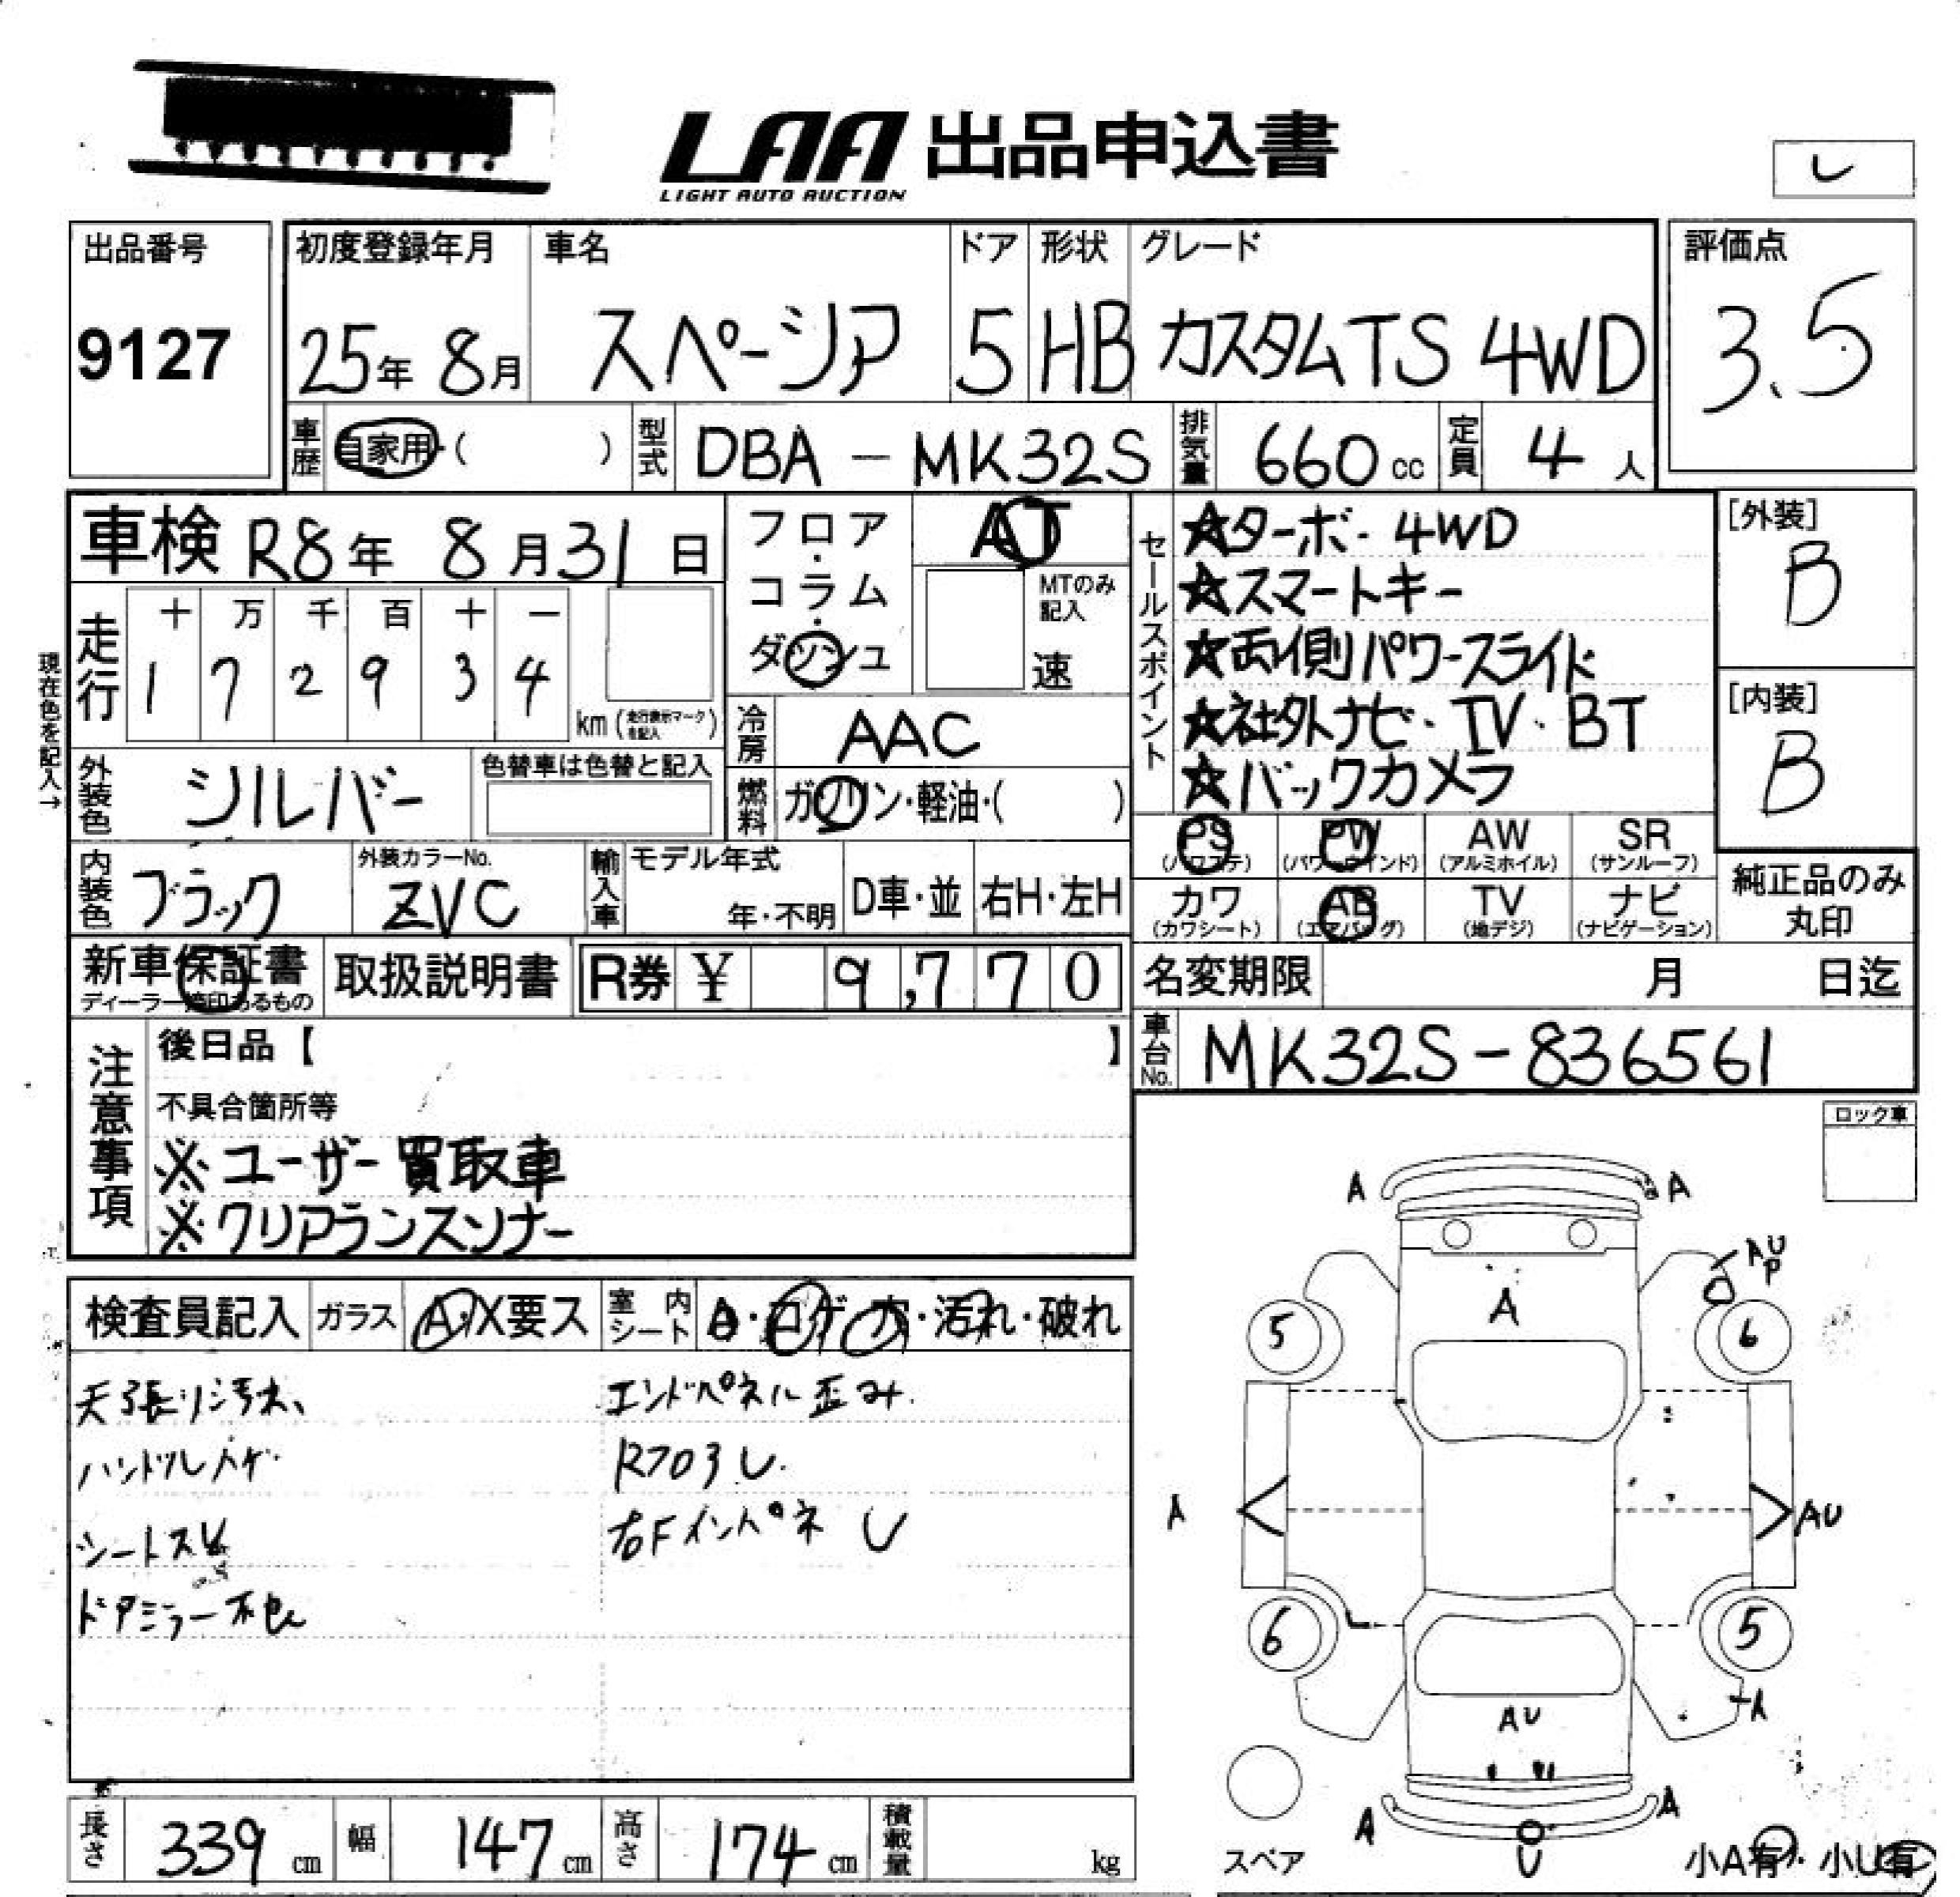 LAA 出品申込書
LIGHT AUTO AUCTION
レ
出品番号
9127
初度登録年月
25年 8月
車名
スペーシア
ドア
5
形状
HB
グレード
カスタムTS 4WD
評価点
3.5
車歴 自家用・( )
型式 DBA - MK32S
排気量 660 cc
定員 4 人
車検 R8年 8月31日
フロア・コラム・ダッシュ
AT
MTのみ記入
速
セールスポイント
☆ターボ・4WD
☆スマートキー
☆両側パワースライド
☆社外ナビ・TV・BT
☆バックカメラ
[外装]
B
[内装]
B
現在色を記入→
走行
十 万 千 百 十 一
1 7 2 9 3 4
km (走行表示マークを記入)
冷房 AAC
外装色 シルバー
色替車は色替と記入
燃料 ガソリン・軽油・( )
PS (パワステ)
PW (パワーウインド)
AW (アルミホイル)
SR (サンルーフ)
カワ (カワシート)
AB (エアバッグ)
TV (地デジ)
ナビ (ナビゲーション)
純正品のみ丸印
内装色 ブラック
外装カラーNo.
ZVC
輸入車
モデル年式
年・不明
D車・並
右H・左H
新車保証書
ディーラー捺印あるもの
取扱説明書
R券 ¥ 9,770
名変期限 月 日迄
車台No. MK32S-836561
注意事項
後日品【 】
不具合箇所等
※ユーザー買取車
※クリアランスソナー
ロック車
検査員記入
ガラス A・X要ス
室内シート A・コゲ・穴・汚れ・破れ
天張り汚れ、
ハンドルハゲ
シートスレ
エンドパネル歪み.
右Fインパネ U
A
A
A U P
A
5
6
A
AU
6
5
A
AU
A
A
U
スペア
小A有・小U有
長さ 339 cm
幅 147 cm
高さ 174 cm
積載量 kg